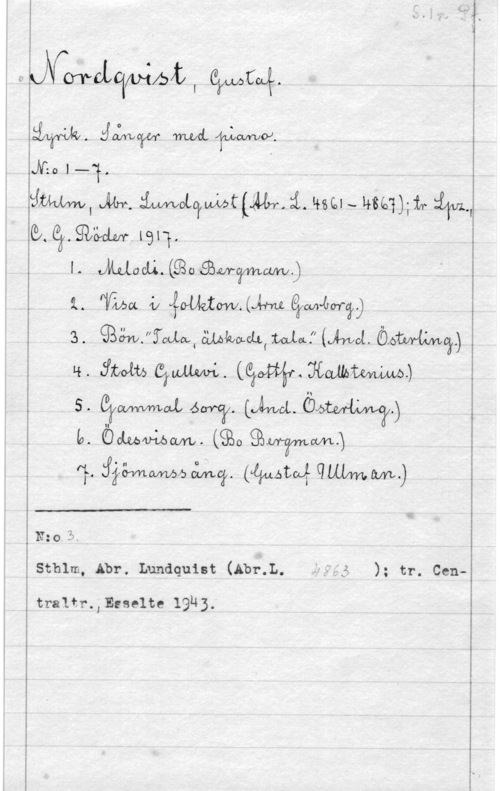 S.1 r. 9f.
Nordqvist, Gustaf.
Lyrik. Sånger med piano.
N:o 1–7.
Sthlm, Abr. Lundquist (Abr. L. 4861–4867); tr Lpz.,
C. G. Röder 1917.
1. Melodi. (Bo Bergman.)
2. Visa i folkton. (Arne Garborg.)
3. Bön. "Tala, älskade, tala." (And. Österling.)
4. Stolts Gullevi. (Gottfr. Kallstenius.)
5. Gammal sorg. (And. Österling.)
6. Ödesvisan. (Bo Bergman.)
7. Sjömanssång. (Gustaf Ullman.)
N:o 3.
Sthlm, Abr. Lundquist (Abr.L. 4863 ); tr. Cen-
traltr., Esselte 1943.